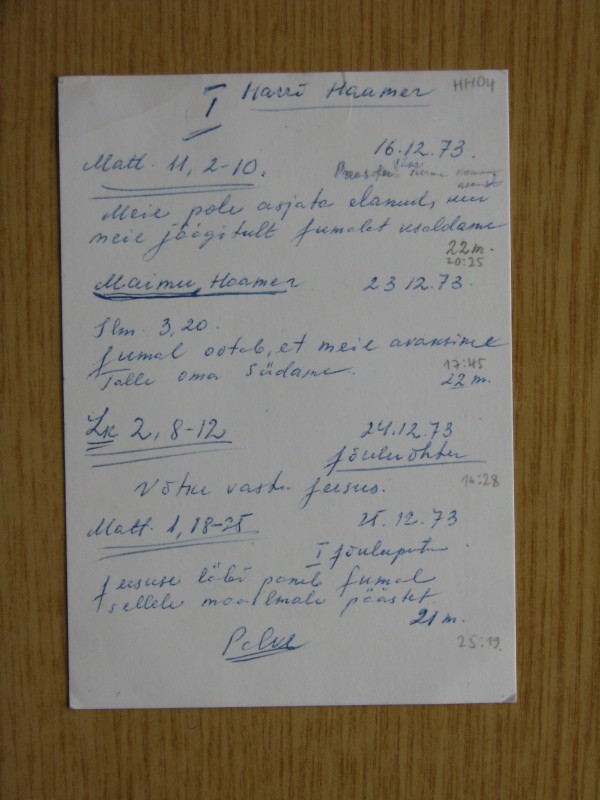 I Harri Haamer HH04
16.12.73.
Matt. 11, 2-10.
Meie pole asjata elanud, kui
meie jäägitult Jumalat usaldame
22 m.
20:25
Maimu Haamer 23 12.73.
Ilm. 3,20.
Jumal ootab, et meie avaksime
Talle oma südame.
17:45
22 m.
Lk 2, 8-12 24.12.73
Jõuluõhtu
Võtke vastu Jeesus. 16:28
Matt. 1, 18-25 25.12.73
I Jõulupüha
Jeesuse läbi panib Jumal
sellele maailmale päästet
21 m.
Palve
25:19